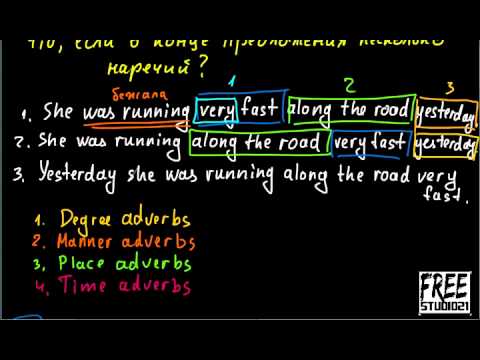 что, если в конце предложения несколько
наречий?
1 2 3
бежала
1. She was running very fast along the road yesterday
2. She was running along the road very fast yesterday
3. Yesterday she was running along the road very
fast.
1. Degree adverbs
2. Manner adverbs
3. Place adverbs
4. Time adverbs
FREE
STUDIO21